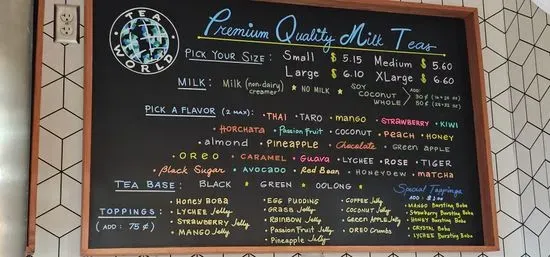 TEA WORLD
Premium Quality Milk Teas
PICK YOUR SIZE: Small $ 5.15 Medium $ 5.60
Large $ 6.10 XLarge $ 6.60
MILK: Milk (non-dairy creamer) * NO MILK * SOY COCONUT WHOLE ADD:
30¢ (16 + 20 oz)
50¢ (24 + 32 oz)
PICK A FLAVOR (2 MAX): • THAI • TARO • mango • STRAWBERRY • KIWI
• HORCHATA • Passion Fruit • COCONUT • PEACH • HONEY
• almond • PINEAPPLE • Chocolate • Green apple
• OREO • CARAMEL • Guava • LYCHEE • ROSE • TIGER
• Black Sugar • AVOCADO • Red Bean • HONEYDEW • MATCHA
TEA BASE: BLACK * GREEN * OOLONG *
TOPPINGS:
(ADD: 75¢)
• HONEY BOBA
• LYCHEE Jelly
• STRAWBERRY Jelly
• MANGO Jelly
• EGG PUDDING
• GRASS Jelly
• RAINBOW Jelly
• Passion Fruit Jelly
• Pineapple Jelly
• COFFEE Jelly
• COCONUT Jelly
• GREEN APPLE Jelly
• OREO Crumbs
Special Toppings
• ADD: $1.00
• MANGO Bursting Boba
• Strawberry Bursting Boba
• HONEY Bursting Boba
• CRYSTAL Boba
• LYCHEE Bursting Boba